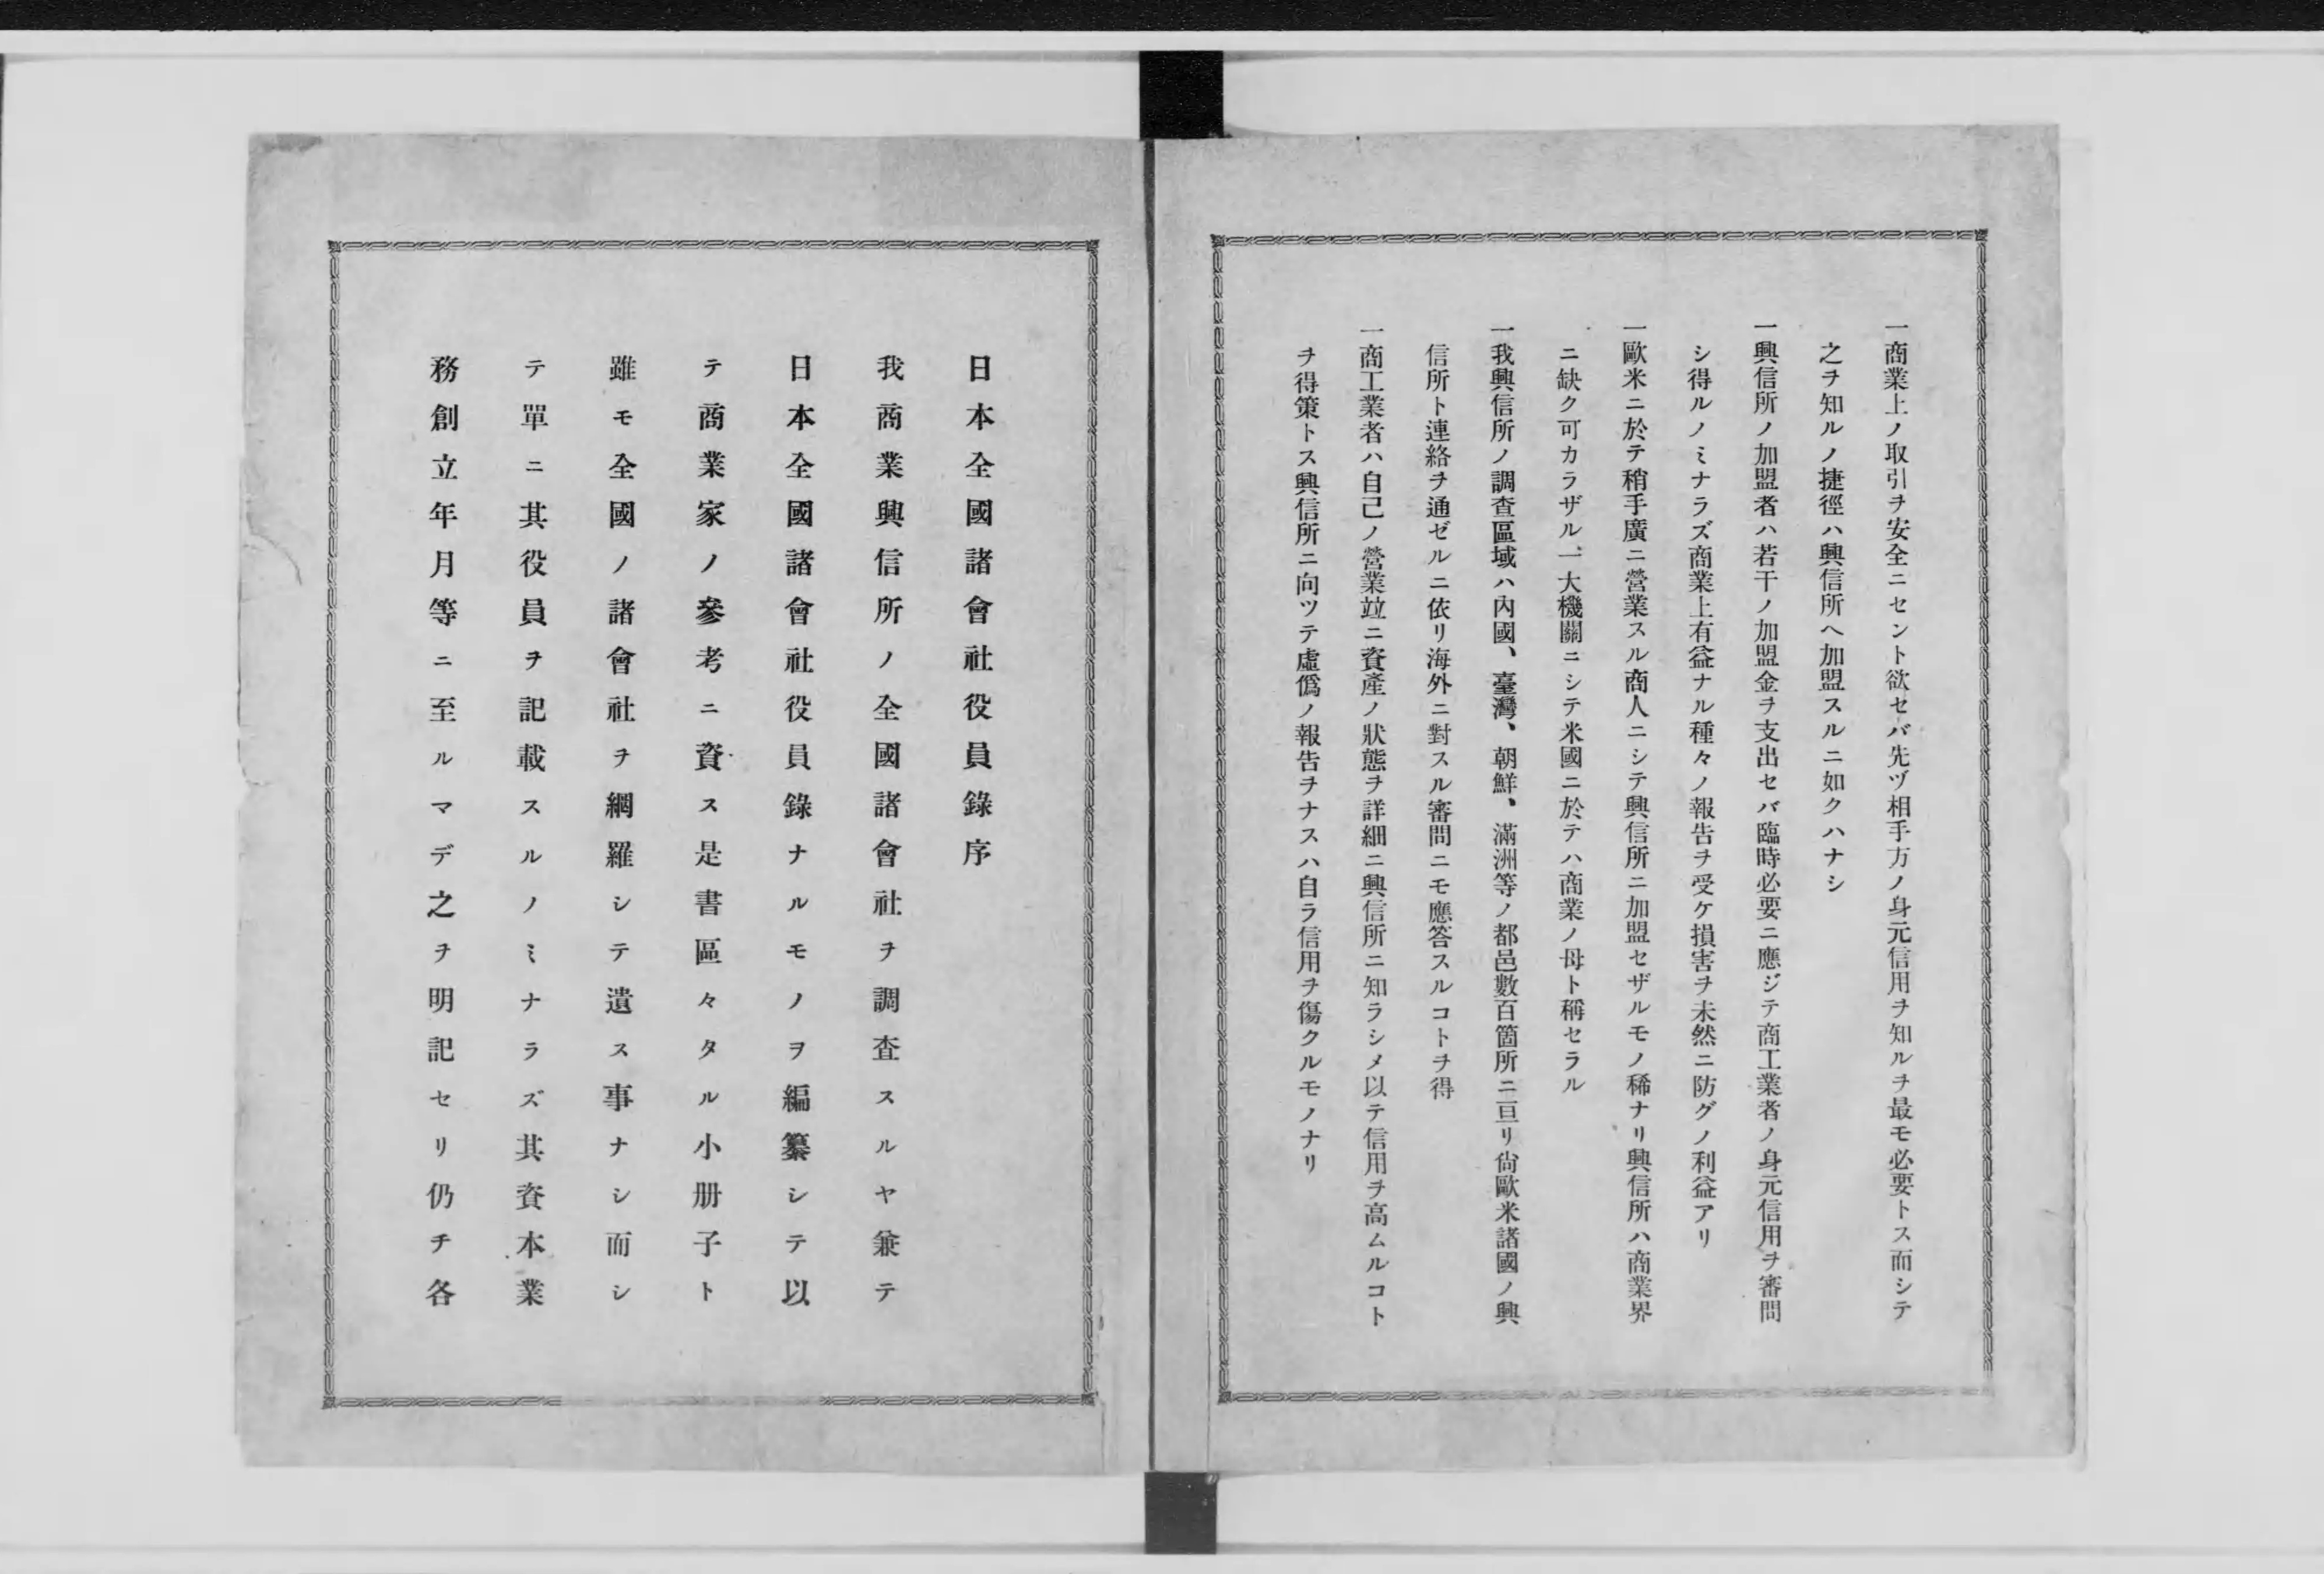 一商業上ノ取引ヲ安全ニセント欲セバ先ヅ相手方ノ身元信用ヲ知ルヲ最モ必要トス而シテ
之ヲ知ルノ捷徑ハ興信所ヘ加盟スルニ如クハナシ
一興信所ノ加盟者ハ若干ノ加盟金ヲ支出セバ臨時必要ニ應ジテ商工業者ノ身元信用ヲ審問
シ得ルノミナラズ商業上有益ナル種々ノ報告ヲ受ケ損害ヲ未然ニ防グノ利益アリ
一歐米ニ於テ稍手廣ニ營業スル商人ニシテ興信所ニ加盟セザルモノ稀ナリ興信所ハ商業界
ニ缺ク可カラザル一大機關ニシテ米國ニ於テハ商業ノ母ト稱セラル
一我興信所ノ調査區域ハ內國、臺灣、朝鮮、滿洲等ノ都邑數百箇所ニ亘リ尙歐米諸國ノ興
信所ト連絡ヲ通ゼルニ依リ海外ニ對スル審問ニモ應答スルコトヲ得
一商工業者ハ自己ノ營業竝ニ資產ノ狀態ヲ詳細ニ興信所ニ知ラシメ以テ信用ヲ高ムルコト
ヲ得策トス興信所ニ向ツテ虛僞ノ報告ヲナスハ自ラ信用ヲ傷クルモノナリ
日本全國諸會社役員錄序
我商業興信所ノ全國諸會社ヲ調査スルヤ兼テ
日本全國諸會社役員錄ナルモノヲ編纂シテ以
テ商業家ノ參考ニ資ス是書區々タル小册子ト
雖モ全國ノ諸會社ヲ網羅シテ遺ス事ナシ而シ
テ單ニ其役員ヲ記載スルノミナラズ其資本業
務創立年月等ニ至ルマデ之ヲ明記セリ仍チ各